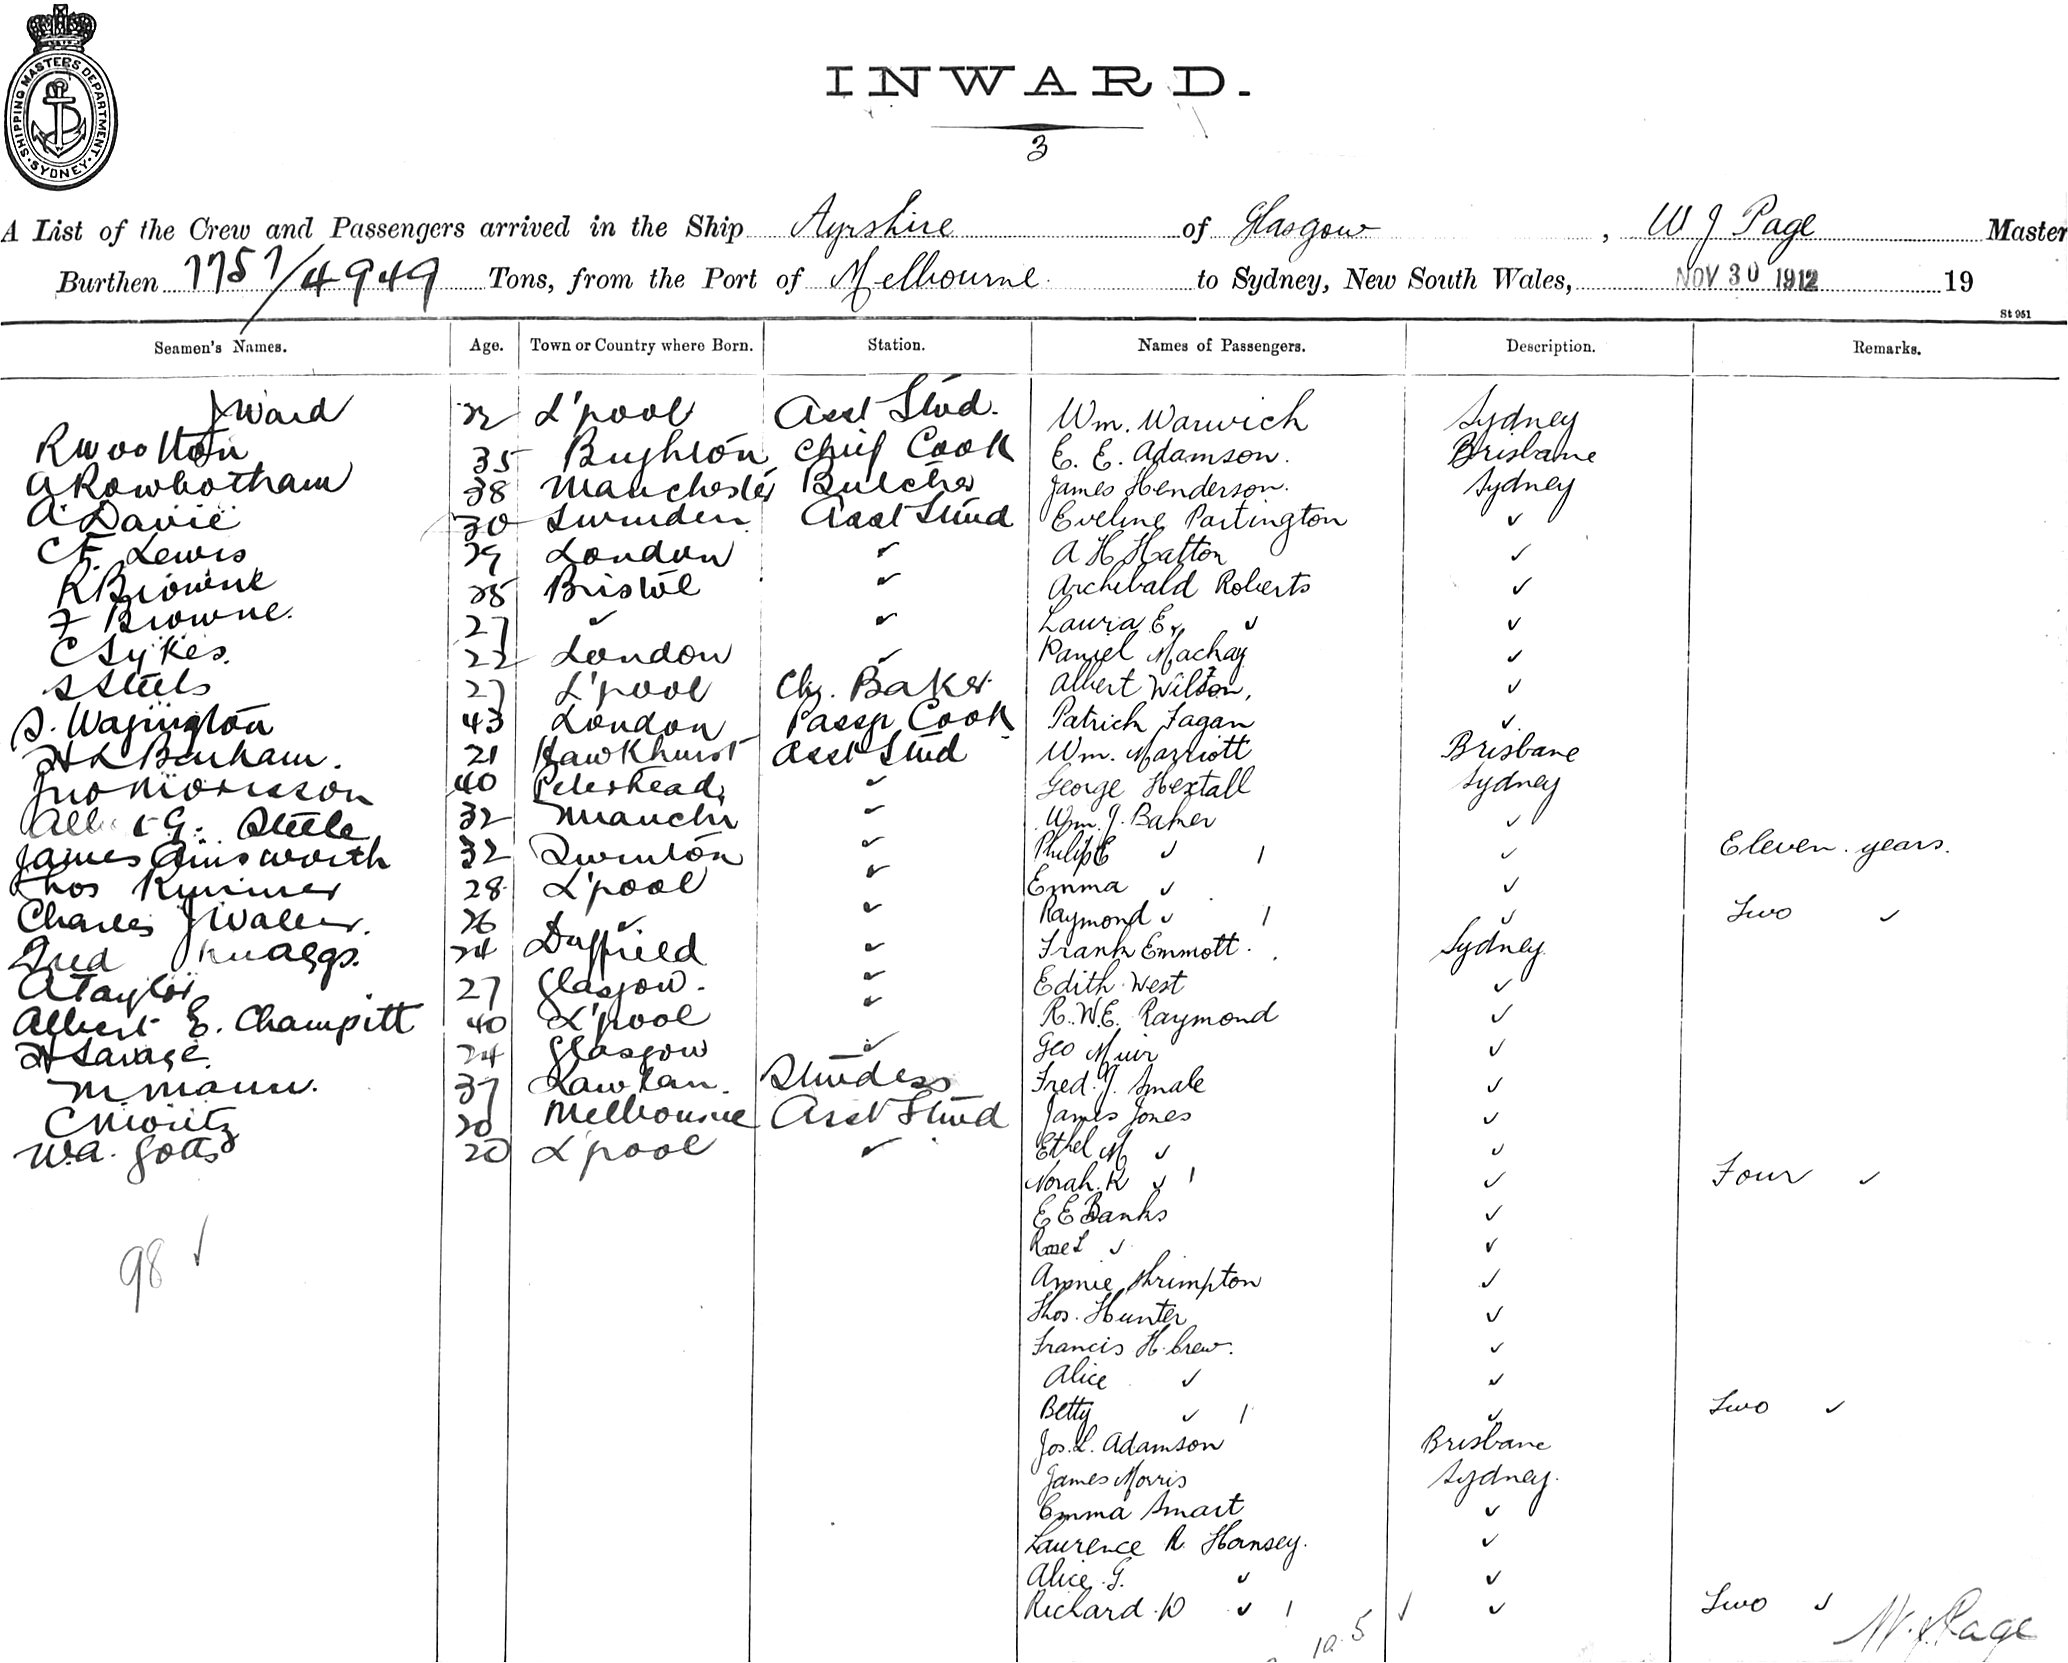 SHIPPING MASTERS DEPARTMENT. SYDNEY.
INWARD.
3
A List of the Crew and Passengers arrived in the Ship Ayrshire of Glasgow, W J Page Master
Burthen 7757/4949 Tons, from the Port of Melbourne to Sydney, New South Wales, NOV 30 1912 19
St 951
Seamen's Names. Age. Town or Country where Born. Station. Names of Passengers. Description. Remarks.
J Ward 22 L'pool Asst Stud. Wm. Warwich Sydney
R Wootton 35 Brighton Chief Cook E. E. Adamson. Brisbane
A Rowbotham 38 Manchester Butcher James Henderson. Sydney
A Davie 30 Swinden Asst Stud Eveline Partington ✓
C F. Lewis 29 London ✓ A H Hatton ✓
R Browne 25 Bristol ✓ Archibald Roberts ✓
F Browne. 27 ✓ ✓ Laura E. ✓ ✓
C Sykes. 22 London ✓ Daniel Mackay ✓
S Steels 27 L'pool Baker Albert Wilson, ✓
S. 43 London Passgr Cook Patrick Fagan ✓
H L Benham. 21 Hawkhurst Asst Stud Wm. Marriott Brisbane
Jno Morisson 40 Peterhead, ✓ George Hextall Sydney
G. Steele 32 Manchr ✓ Wm. J. Baker ✓
James Ainsworth 32 Swinton ✓ Philip E ✓ 1 ✓ Eleven years.
Thos 28 L'pool ✓ Emma ✓ ✓
Charles J Waller. 26 ✓ ✓ Raymond ✓ 1 ✓ Two ✓
Fred Knaggs. 24 Duffield ✓ Frank Emmott. Sydney.
A Taylor 27 Glasgow. ✓ Edith West ✓
Albert E. Champitt 40 L'pool ✓ R. W. E. Raymond ✓
H Savage. 24 Glasgow ✓ Geo Muir ✓
M Mann. 37 Studess Fred. J. Smale ✓
C Moritz 20 Melbourne Asst Stud James Jones ✓
W. A. Gotts 20 L'pool ✓ Ethel M ✓ ✓
Norah. K ✓ 1 ✓ Four ✓
E E Banks ✓
Rose L ✓ ✓
98 ✓
Annie Shrimpton ✓
Thos. Hunter ✓
Francis H. Crew. ✓
Alice ✓ ✓
Betty ✓ 1 ✓ Two ✓
Jos. L. Adamson Brisbane
James Morris Sydney.
Emma Smart ✓
Laurence R. Hornsey. ✓
Alice G. ✓ ✓
Richard D ✓ 1 ✓ ✓ Two ✓
10.5
W. J. Page